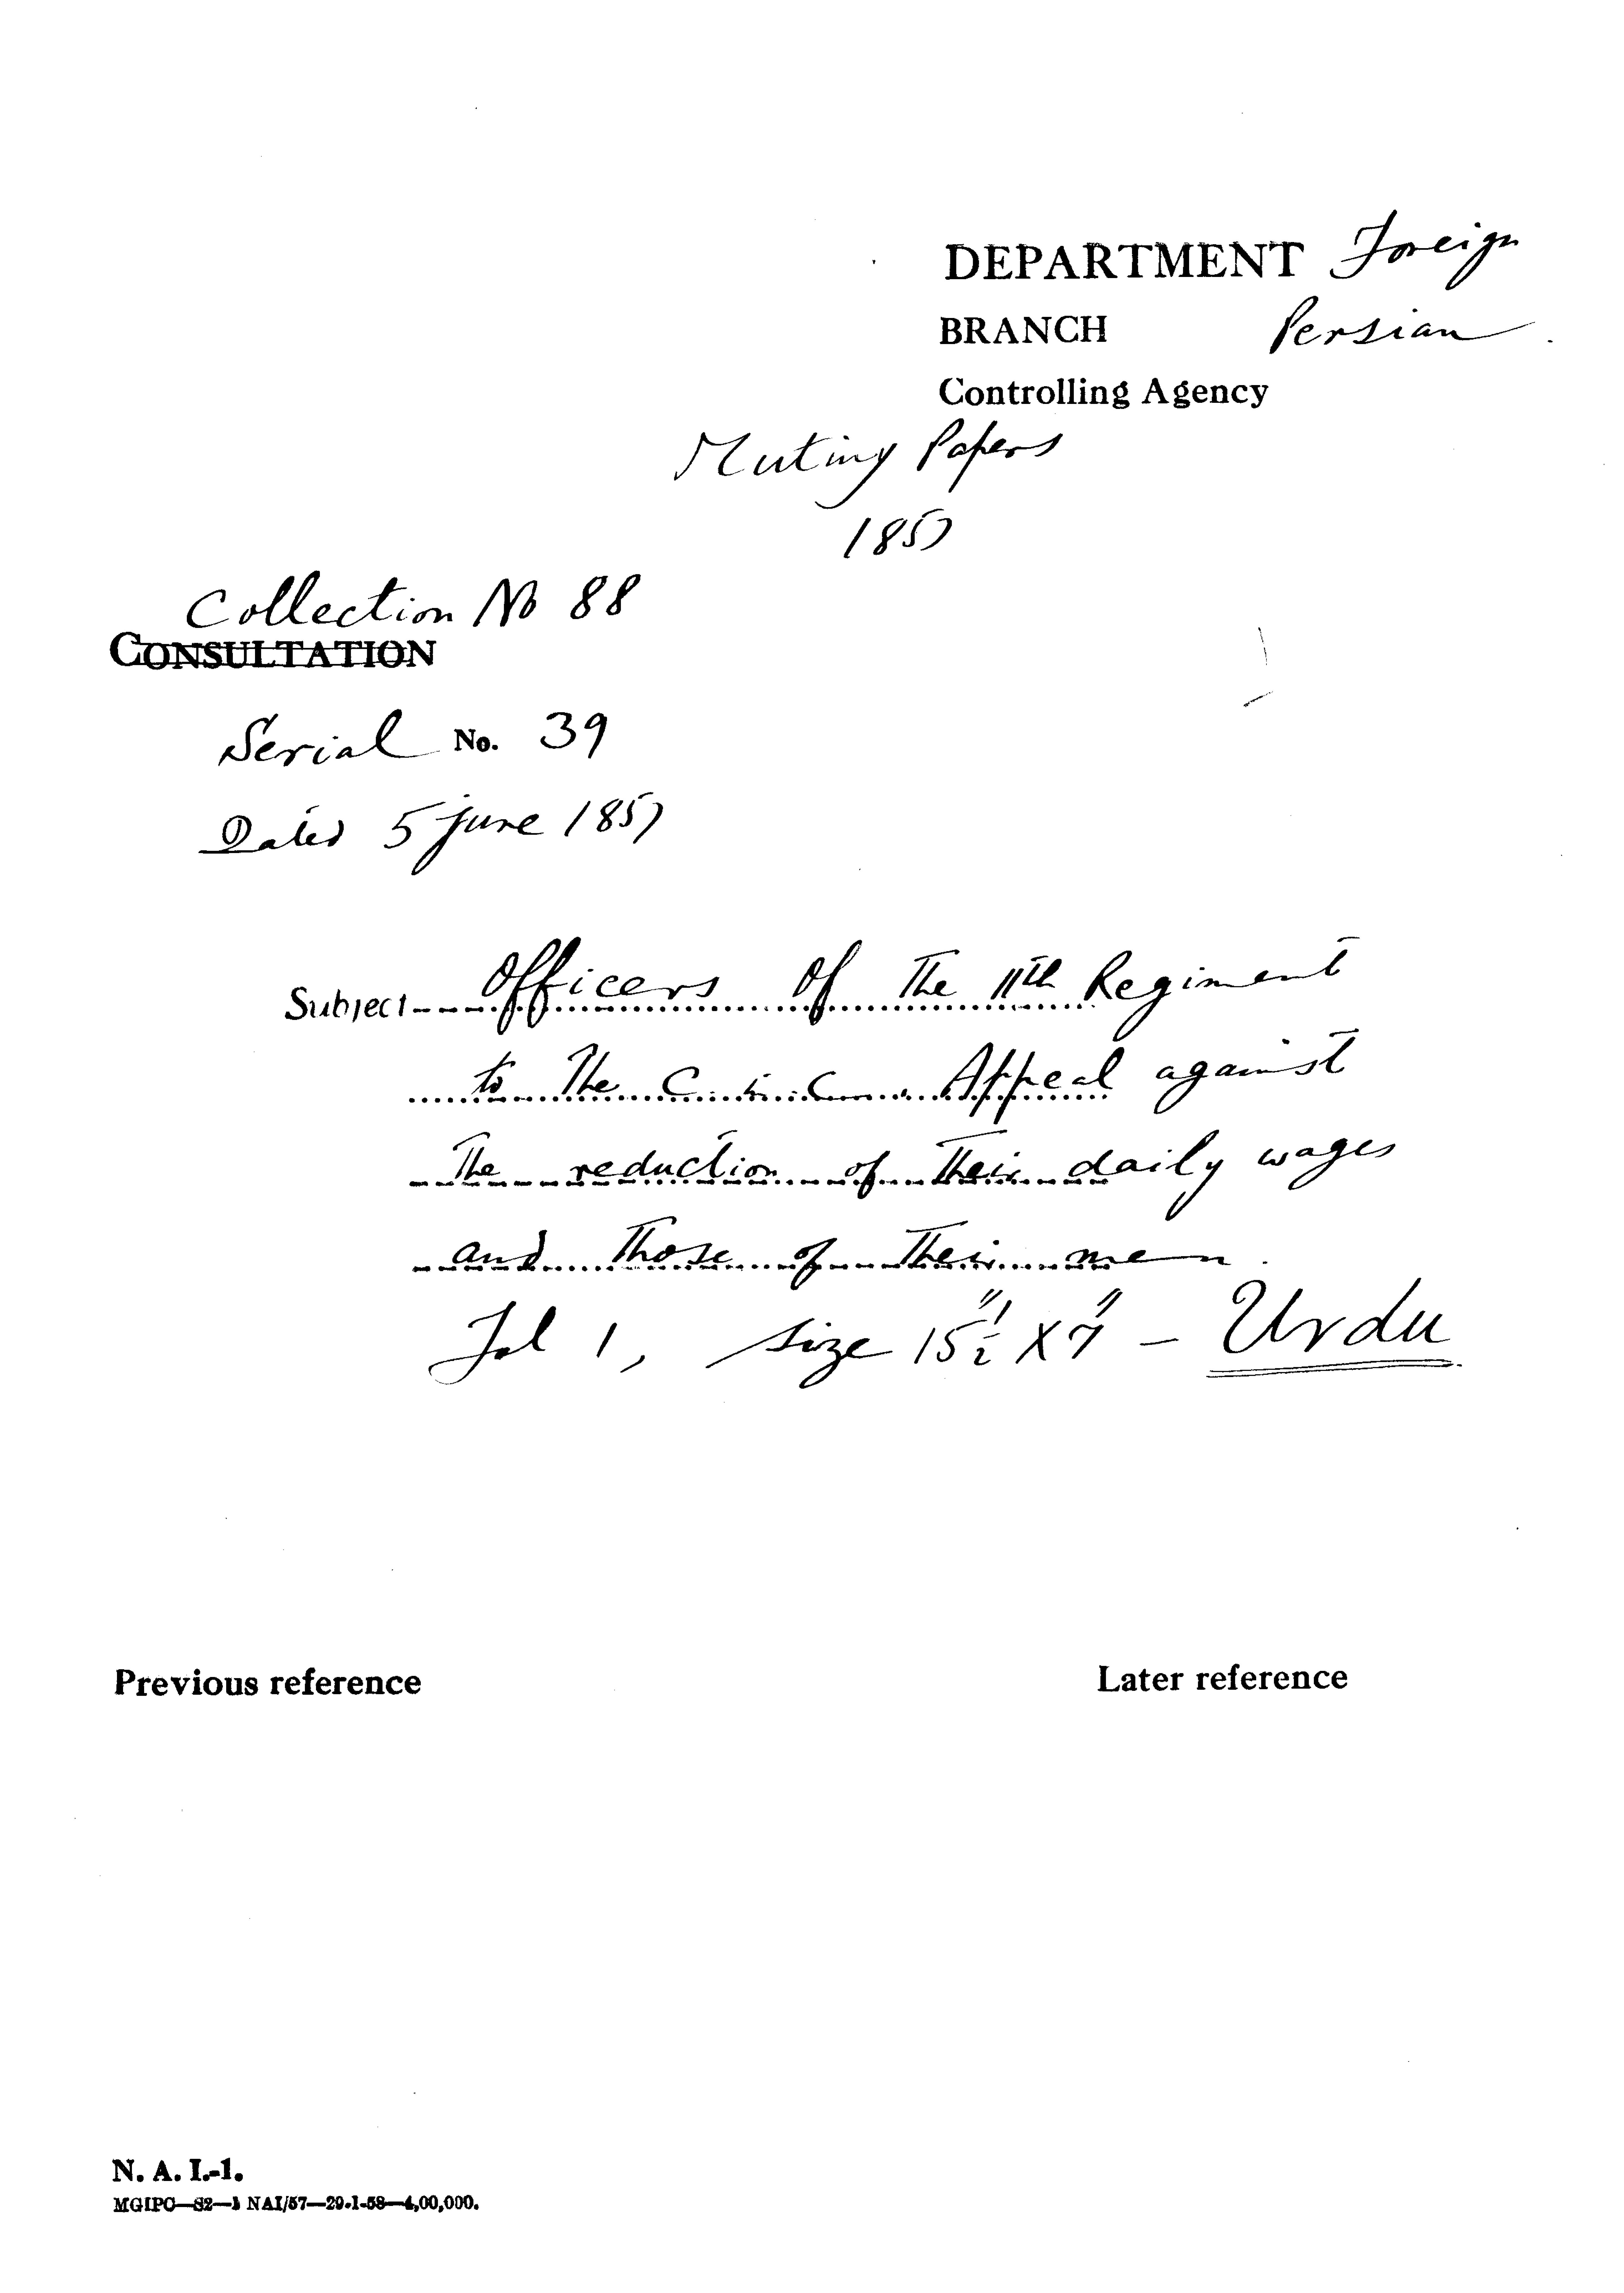 DEPARTMENT Foreign
BRANCH Persian
Controlling Agency
Mutiny Papers
1857
Collection No 88
CONSULTATION
Serial No. 39
Dated 5 June 1857
Subject Officers of The 11th Regiment
to The C. in. C. Appeal against
The reduction of Their daily wages
and Those of Their men.
Fol 1, size 15½" X 7" - Urdu
Previous reference
Later reference
N. A. I.-1.
MGIPC—S2—1 NAI/57—29-1-58—4,00,000.